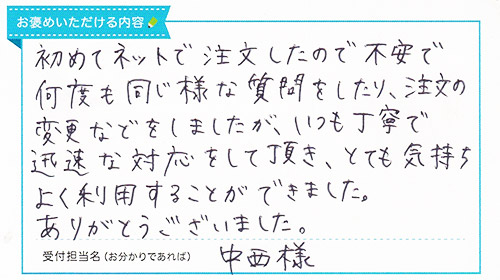 お褒めいただける内容
初めてネットで注文したので不安で
何度も同じ様な質問をしたり、注文の
変更などをしましたが、いつも丁寧で
迅速な対応をして頂き、とても気持ち
よく利用することができました。
ありがとうございました。
受付担当名(お分かりであれば) 中西様